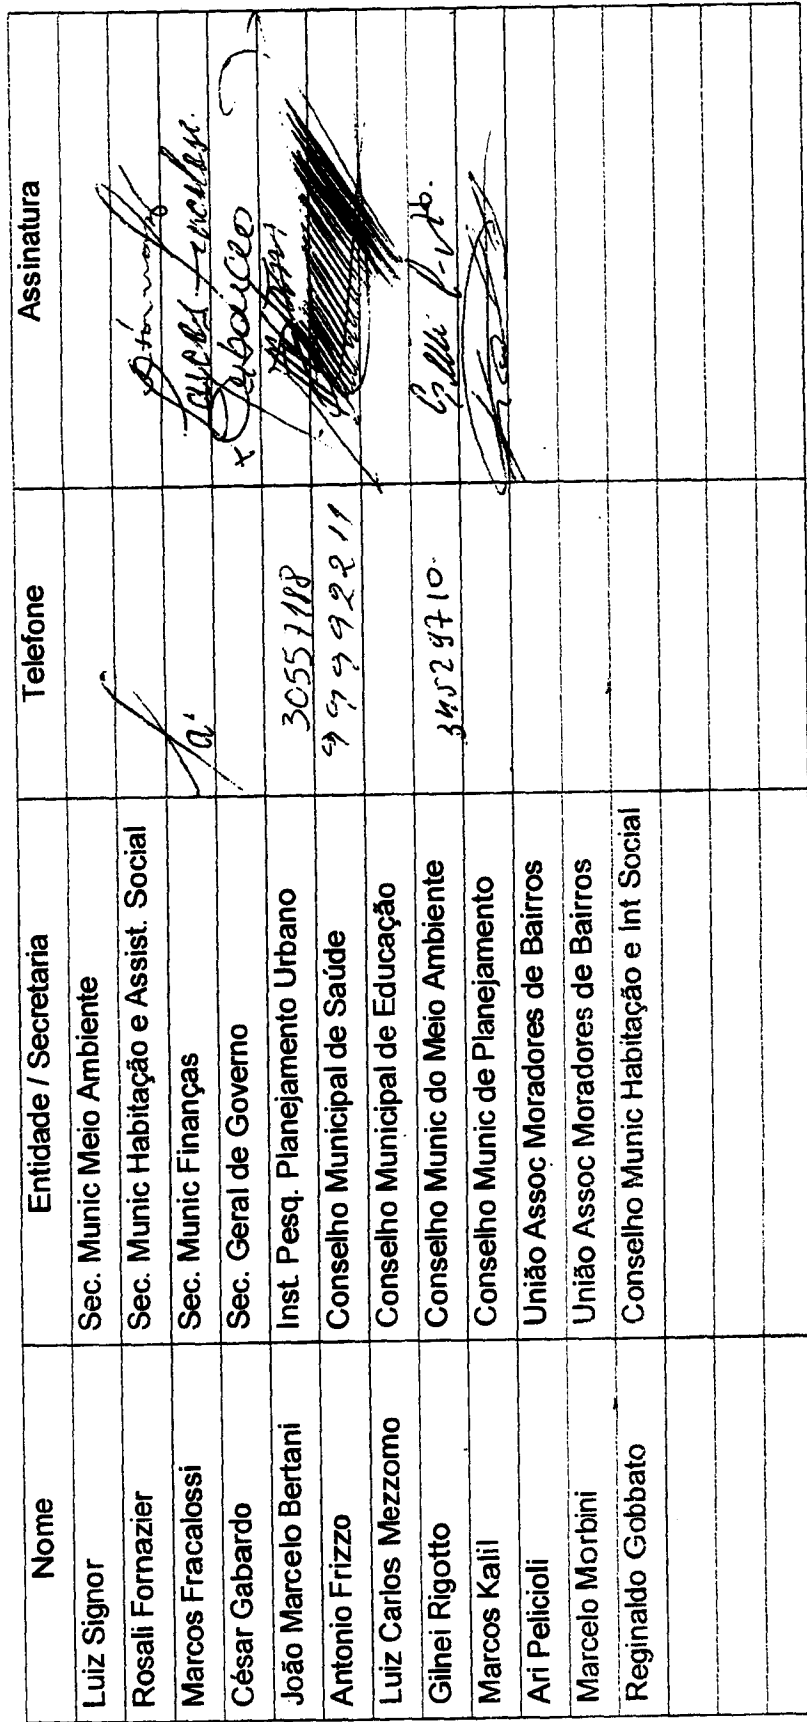 Nome Entidade / Secretaria Telefone Assinatura
Luiz Signor Sec. Munic Meio Ambiente
Rosali Fornazier Sec. Munic Habitação e Assist. Social
Marcos Fracalossi Sec. Munic Finanças
César Gabardo Sec. Geral de Governo
João Marcelo Bertani Inst. Pesq. Planejamento Urbano 30557188
Antonio Frizzo Conselho Municipal de Saúde 99992211
Luiz Carlos Mezzomo Conselho Municipal de Educação
Gilnei Rigotto Conselho Munic do Meio Ambiente 34529710
Marcos Kalil Conselho Munic de Planejamento
Ari Pelicioli União Assoc Moradores de Bairros
Marcelo Morbini União Assoc Moradores de Bairros
Reginaldo Gobbato Conselho Munic Habitação e Int Social